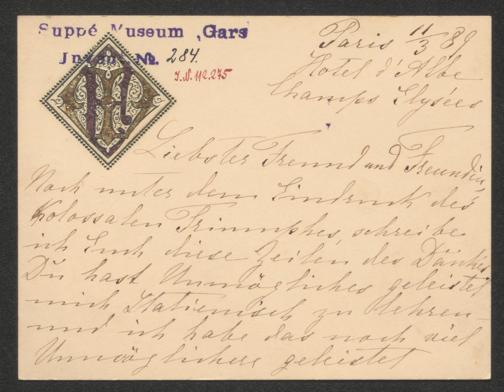 Suppé Museum „Gars"
Invent. No. 284.
I.N. 112.275
Paris 11/3 89
Hotel d'Albe
Champs Elysées
Liebster Freund und Freundin,
Noch unter dem Eindruck des
Kolossalen Triumphes, schreibe
ich Euch diese Zeilen des Dankes.
Du hast Unmögliches geleistet
mich Italienisch zu lehren
und ich habe das noch viel
Unmöglichere geleistet